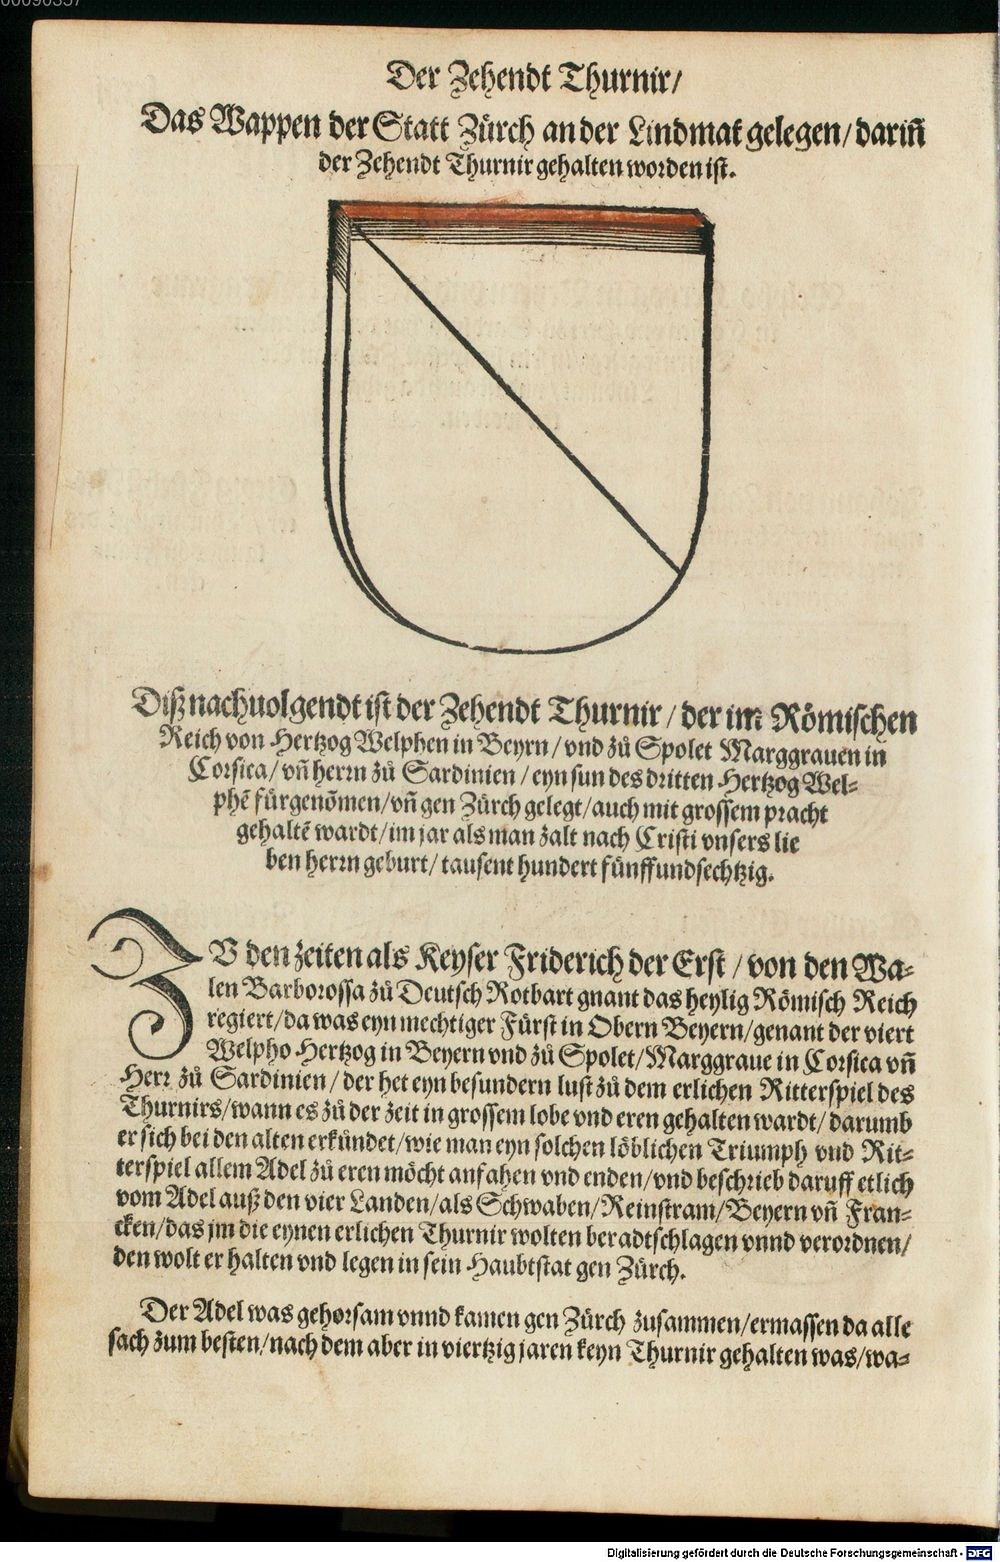 00090357
Der Zehendt Thurnir/
Das Wappen der Statt Zürch an der Lindmat gelegen/ dariñ
der Zehendt Thurnir gehalten worden ist.
Diß nachuolgendt ist der Zehendt Thurnir/ der im Römischen
Reich von Hertzog Welphen in Beyrn/ vnd zů Spolet Marggrauen in
Corsica/ vñ herrn zů Sardinien/ eyn sun des dritten Hertzog Wel-
phẽ fürgenõmen/ vñ gen Zürch gelegt/ auch mit grossem pracht
gehaltẽ wardt/ im jar als man zalt nach Cristi vnsers lie
ben herrn geburt/ tausent hundert fünffundsechtzig.
ZV den zeiten als Keyser Friderich der Erst/ von den Wa-
len Barborossa zů Deutsch Rotbart gnant das heylig Römisch Reich
regiert/ da was eyn mechtiger Fürst in Obern Beyern/ genant der viert
Welpho Hertzog in Beyern vnd zů Spolet/ Marggraue in Corsica vñ
Herr zů Sardinien/ der het eyn besundern lust zů dem erlichen Ritterspiel des
Thurnirs/ wann es zů der zeit in grossem lobe vnd eren gehalten wardt/ darumb
er sich bei den alten erkündet/ wie man eyn solchen löblichen Triumph vnd Rit-
terspiel allem Adel zů eren möcht anfahen vnd enden/ vnd beschrieb daruff etlich
vom Adel auß den vier Landen/ als Schwaben/ Reinstram/ Beyern vñ Fran-
cken/ das jm die eynen erlichen Thurnir wolten beradtschlagen vnnd verordnen/
den wolt er halten vnd legen in sein Haubtstat gen Zürch.
Der Adel was gehorsam vnnd kamen gen Zürch zusammen/ ermassen da alle
sach zum besten/ nach dem aber in viertzig jaren keyn Thurnir gehalten was/ wa-
Digitalisierung gefördert durch die Deutsche Forschungsgemeinschaft - DFG